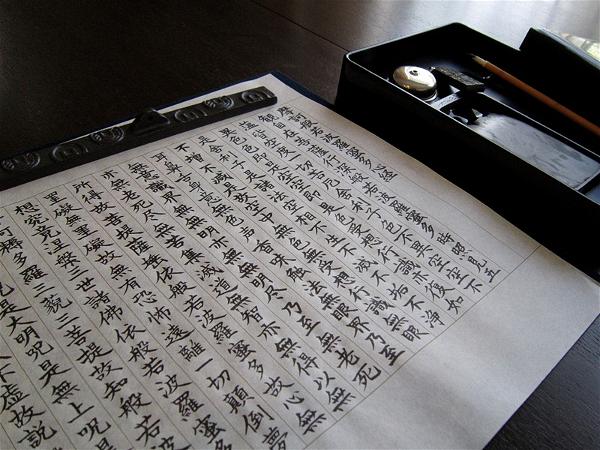 摩訶般若波羅蜜多心経
観自在菩薩行深般若波羅蜜多時照見五
蘊皆空度一切苦厄舎利子色不異空空不
異色色即是空空即是色受想行識亦復如
是舎利子是諸法空相不生不滅不垢不浄
不増不減是故空中無色無受想行識無眼
耳鼻舌身意無色声香味触法無眼界乃至
無意識界無無明亦無無明尽乃至無老死
亦無老死尽無苦集滅道無智亦無得以無
所得故菩提薩埵依般若波羅蜜多故心無
罣礙無罣礙故無有恐怖遠離一切顛倒夢
想究竟涅槃三世諸佛依般若波羅蜜多
阿耨多羅三藐三菩提故知般若波
是大明呪是無上呪是
不虚故説